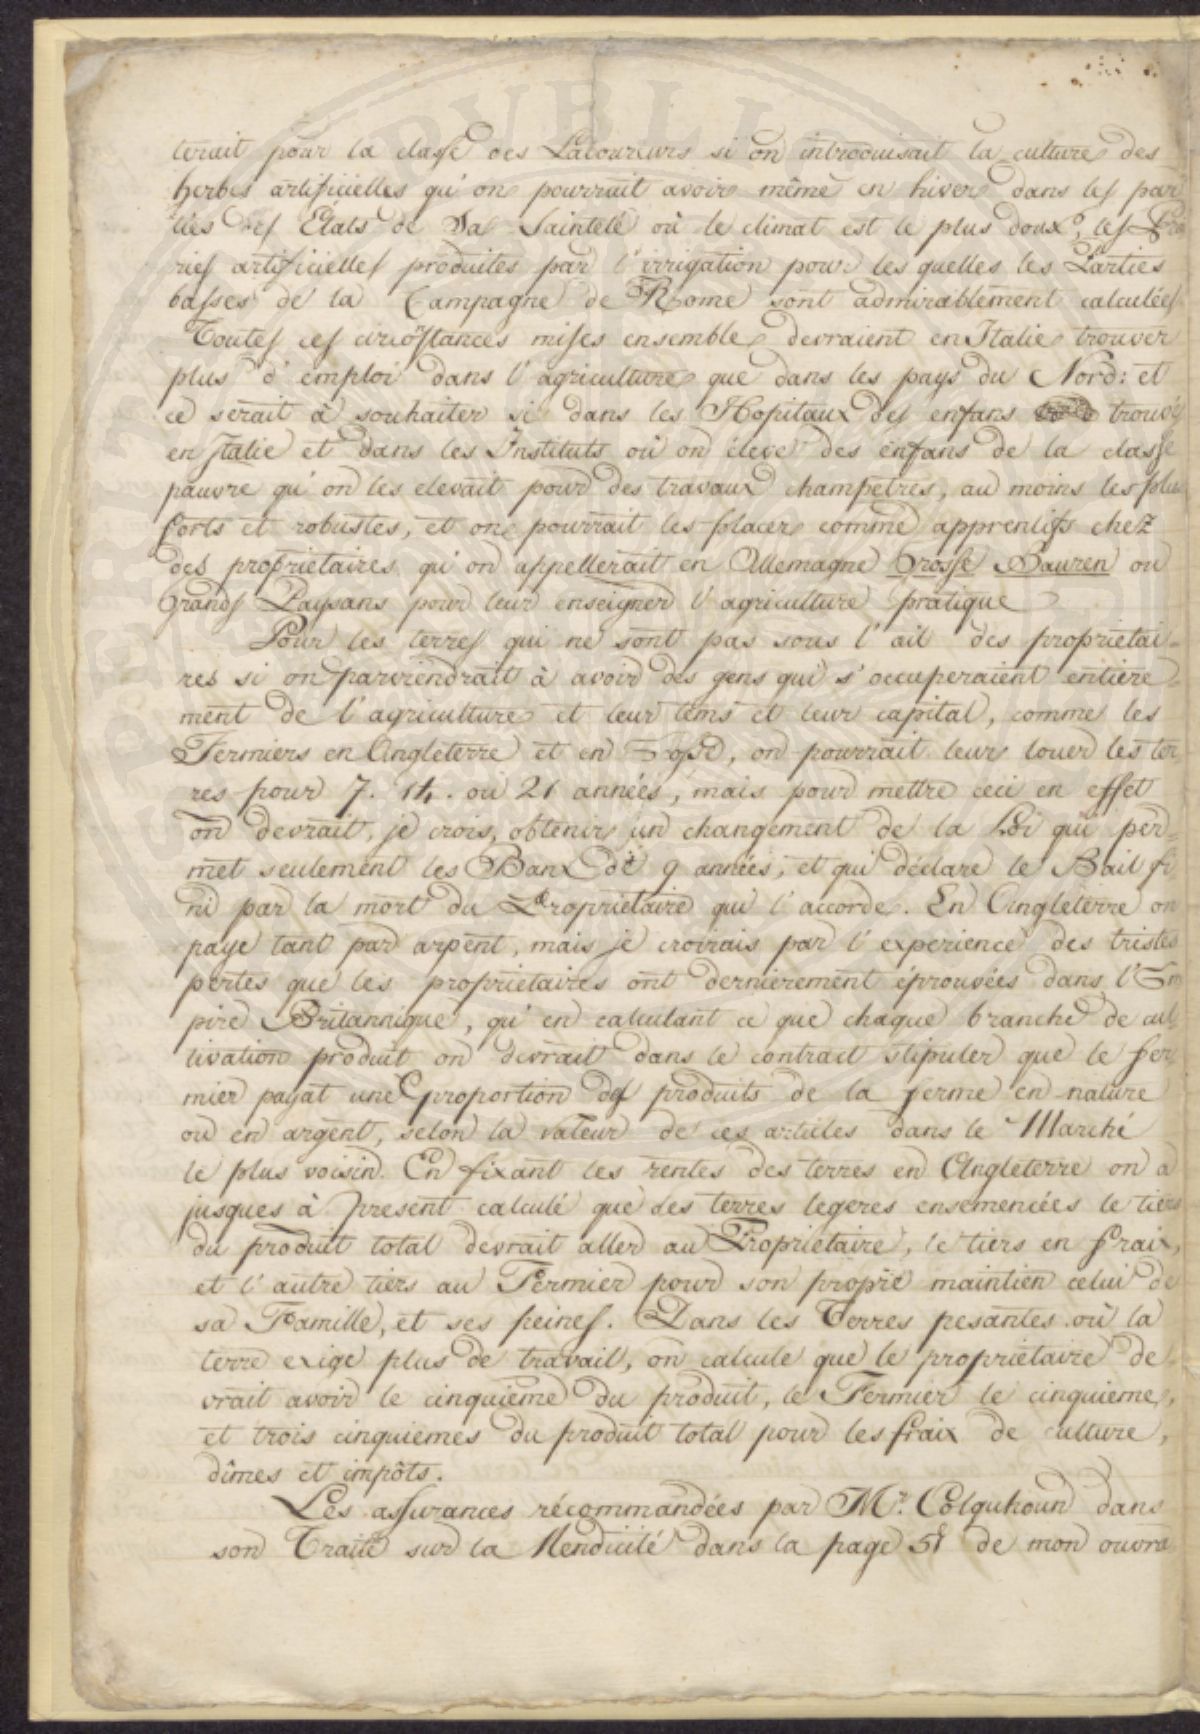 terait pour la classe des Laboureurs si on introduisait la culture des
herbes artificielles qu'on pourrait avoir même en hiver dans les par
ties des États de Sa Sainteté où le climat est le plus doux, les Prai
ries artificielles produites par l'irrigation pour les quelles les Parties
basses de la Campagne de Rome sont admirablement calculées
Toutes ces circostances mises ensemble devraient en Italie trouver
plus d'emploi dans l'agriculture que dans les pays du Nord: et
ce serait à souhaiter si dans les Hopitaux des enfans trouvés
en Italie et dans les Instituts où on éleve des enfans de la classe
pauvre qu'on les elevait pour des travaux champetres, au moins les plus
forts et robustes, et on pourrait les placer comme apprentifs chez
des proprietaires qu'on appellerait en Allemagne Grosse Bauren ou
Grands Paysans pour leur enseigner l'agriculture pratique
Pour les terres qui ne sont pas sous l'œil des proprietai-
res si on parviendrait à avoir des gens qui s'occuperaient entiere-
ment de l'agriculture et leur tems et leur capital, comme les
Fermiers en Angleterre et en, on pourrait leur louer les ter
res pour 7. 14. ou 21 années, mais pour mettre ceci en effet
on devrait, je crois, obtenir un changement de la Loi qui per-
met seulement les Baux de 9 années, et qui déclare le Bail fi
ni par la mort du Proprietaire qui l'accorde. En Angleterre on
paye tant par arpent, mais je croirais par l'experience des tristes
pertes que les proprietaires ont dernierement éprouvées dans l'Em
pire Britannique, qu'en calculant ce que chaque branche de cul
tivation produit on devrait dans le contract stipuler que le fer
mier payat une proportion des produits de la ferme en nature
ou en argent, selon la valeur de ces articles dans le Marché
le plus voisin. En fixant les rentes des terres en Angleterre on a
jusques à present calculé que des terres legeres ensemencées le tiers
du produit total devrait aller au Proprietaire, le tiers en fraix,
et l'autre tiers au Fermier pour son propre maintien celui de
sa Famille, et ses peines. Dans les Terres pesantes où la
terre exige plus de travail, on calcule que le proprietaire de
vrait avoir le cinquieme du produit, le Fermier le cinquieme,
et trois cinquiemes du produit total pour les fraix de culture,
dîmes et impôts.
Les assurances récommandées par Mr. Colquhoun dans
son Traité sur la Mendicité dans la page 58 de mon ouvra